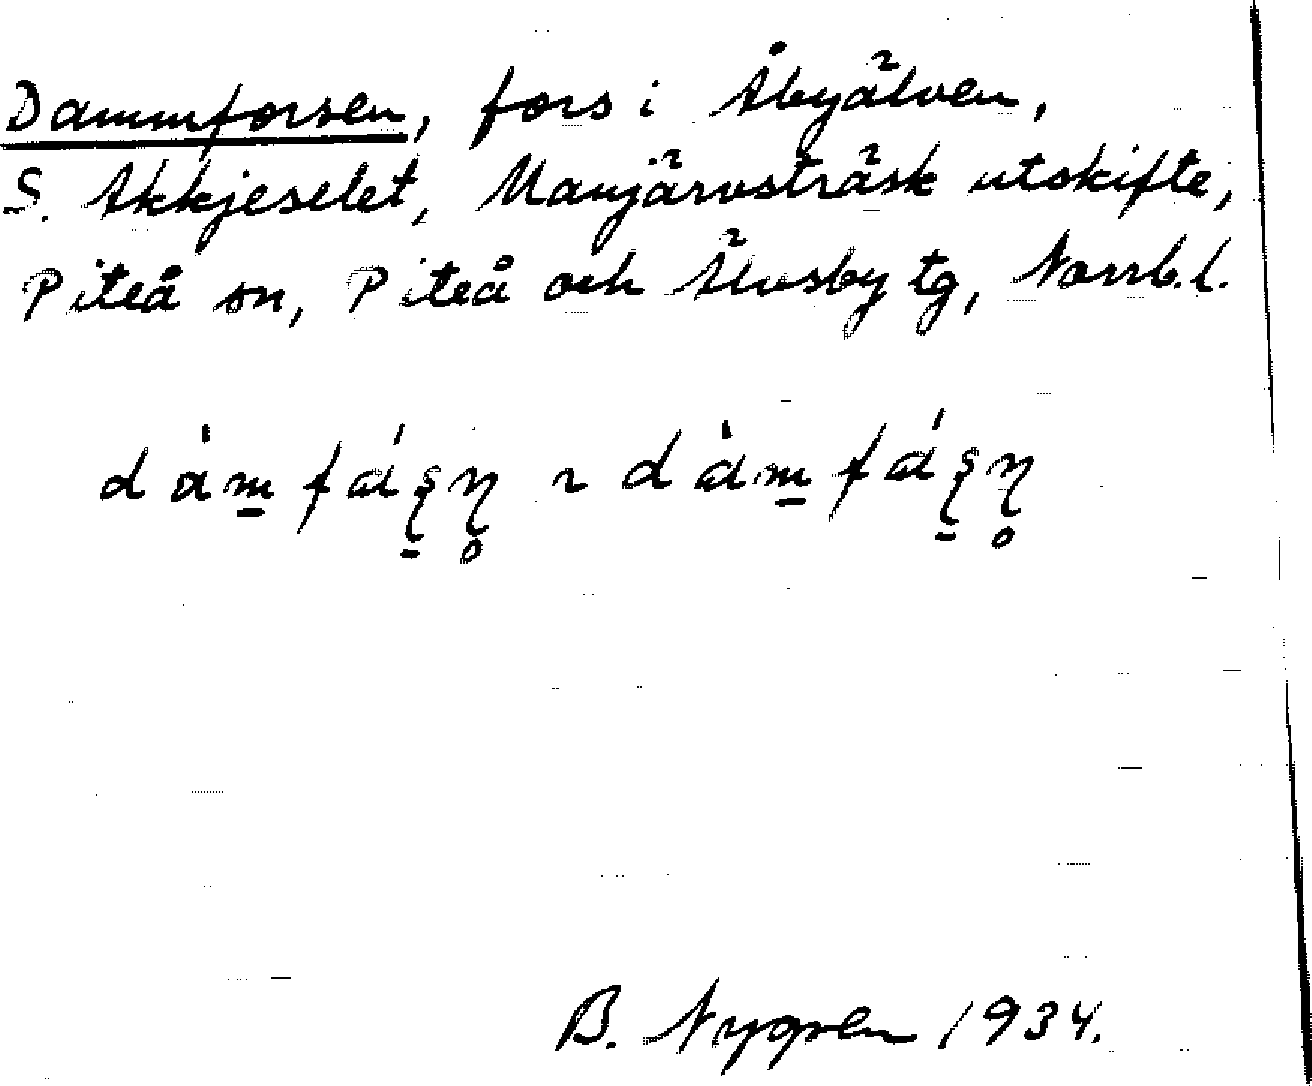 Dammforsen, fors i Åbyälven,
S. Akkjeselet, Manjärvsträsk utskifte,
Piteå sn, Piteå och Älvsby tg, Norrb. l.
B. Nygren 1934.